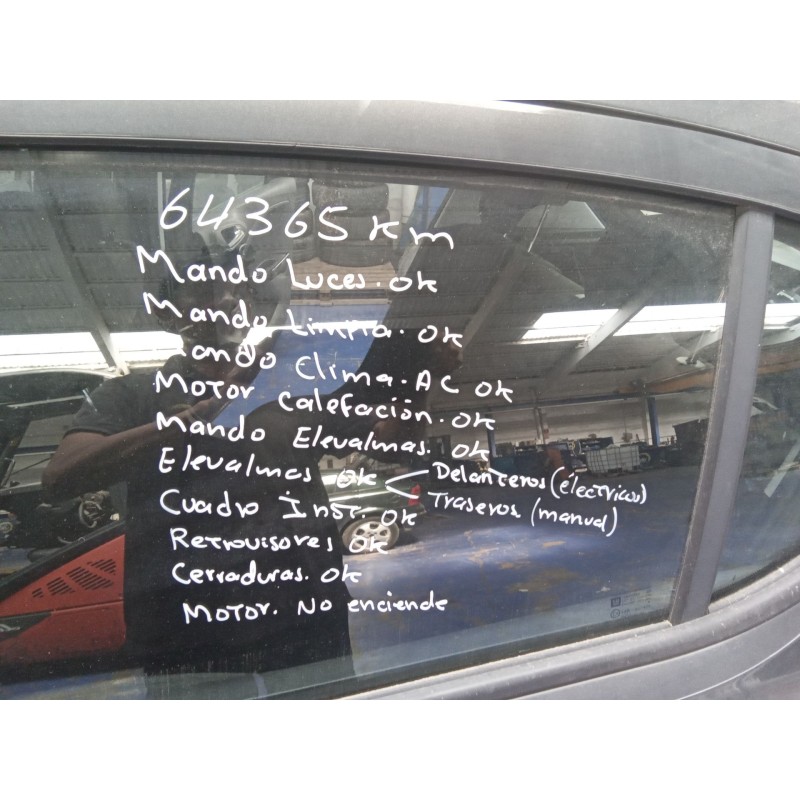 64365 km
Mando Luces. OK
Mando Limpia. OK
Mando Clima. AC OK
Motor Calefación. OK
Mando Elevalunas. OK
Elevalunas OK < Delanteros (électricos)
Traseros (manual)
Cuadro Inst. OK
Retrovisores OK
Cerraduras. OK
Motor. No enciende